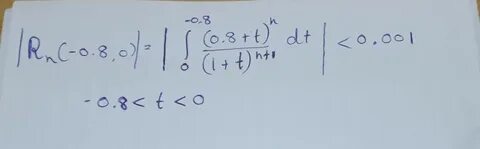 |Rₙ(-0.8,0)| = | ∫₀^{-0.8} (0.8+t)ⁿ / (1+t)ⁿ⁺¹ dt | < 0.001
-0.8 < t < 0